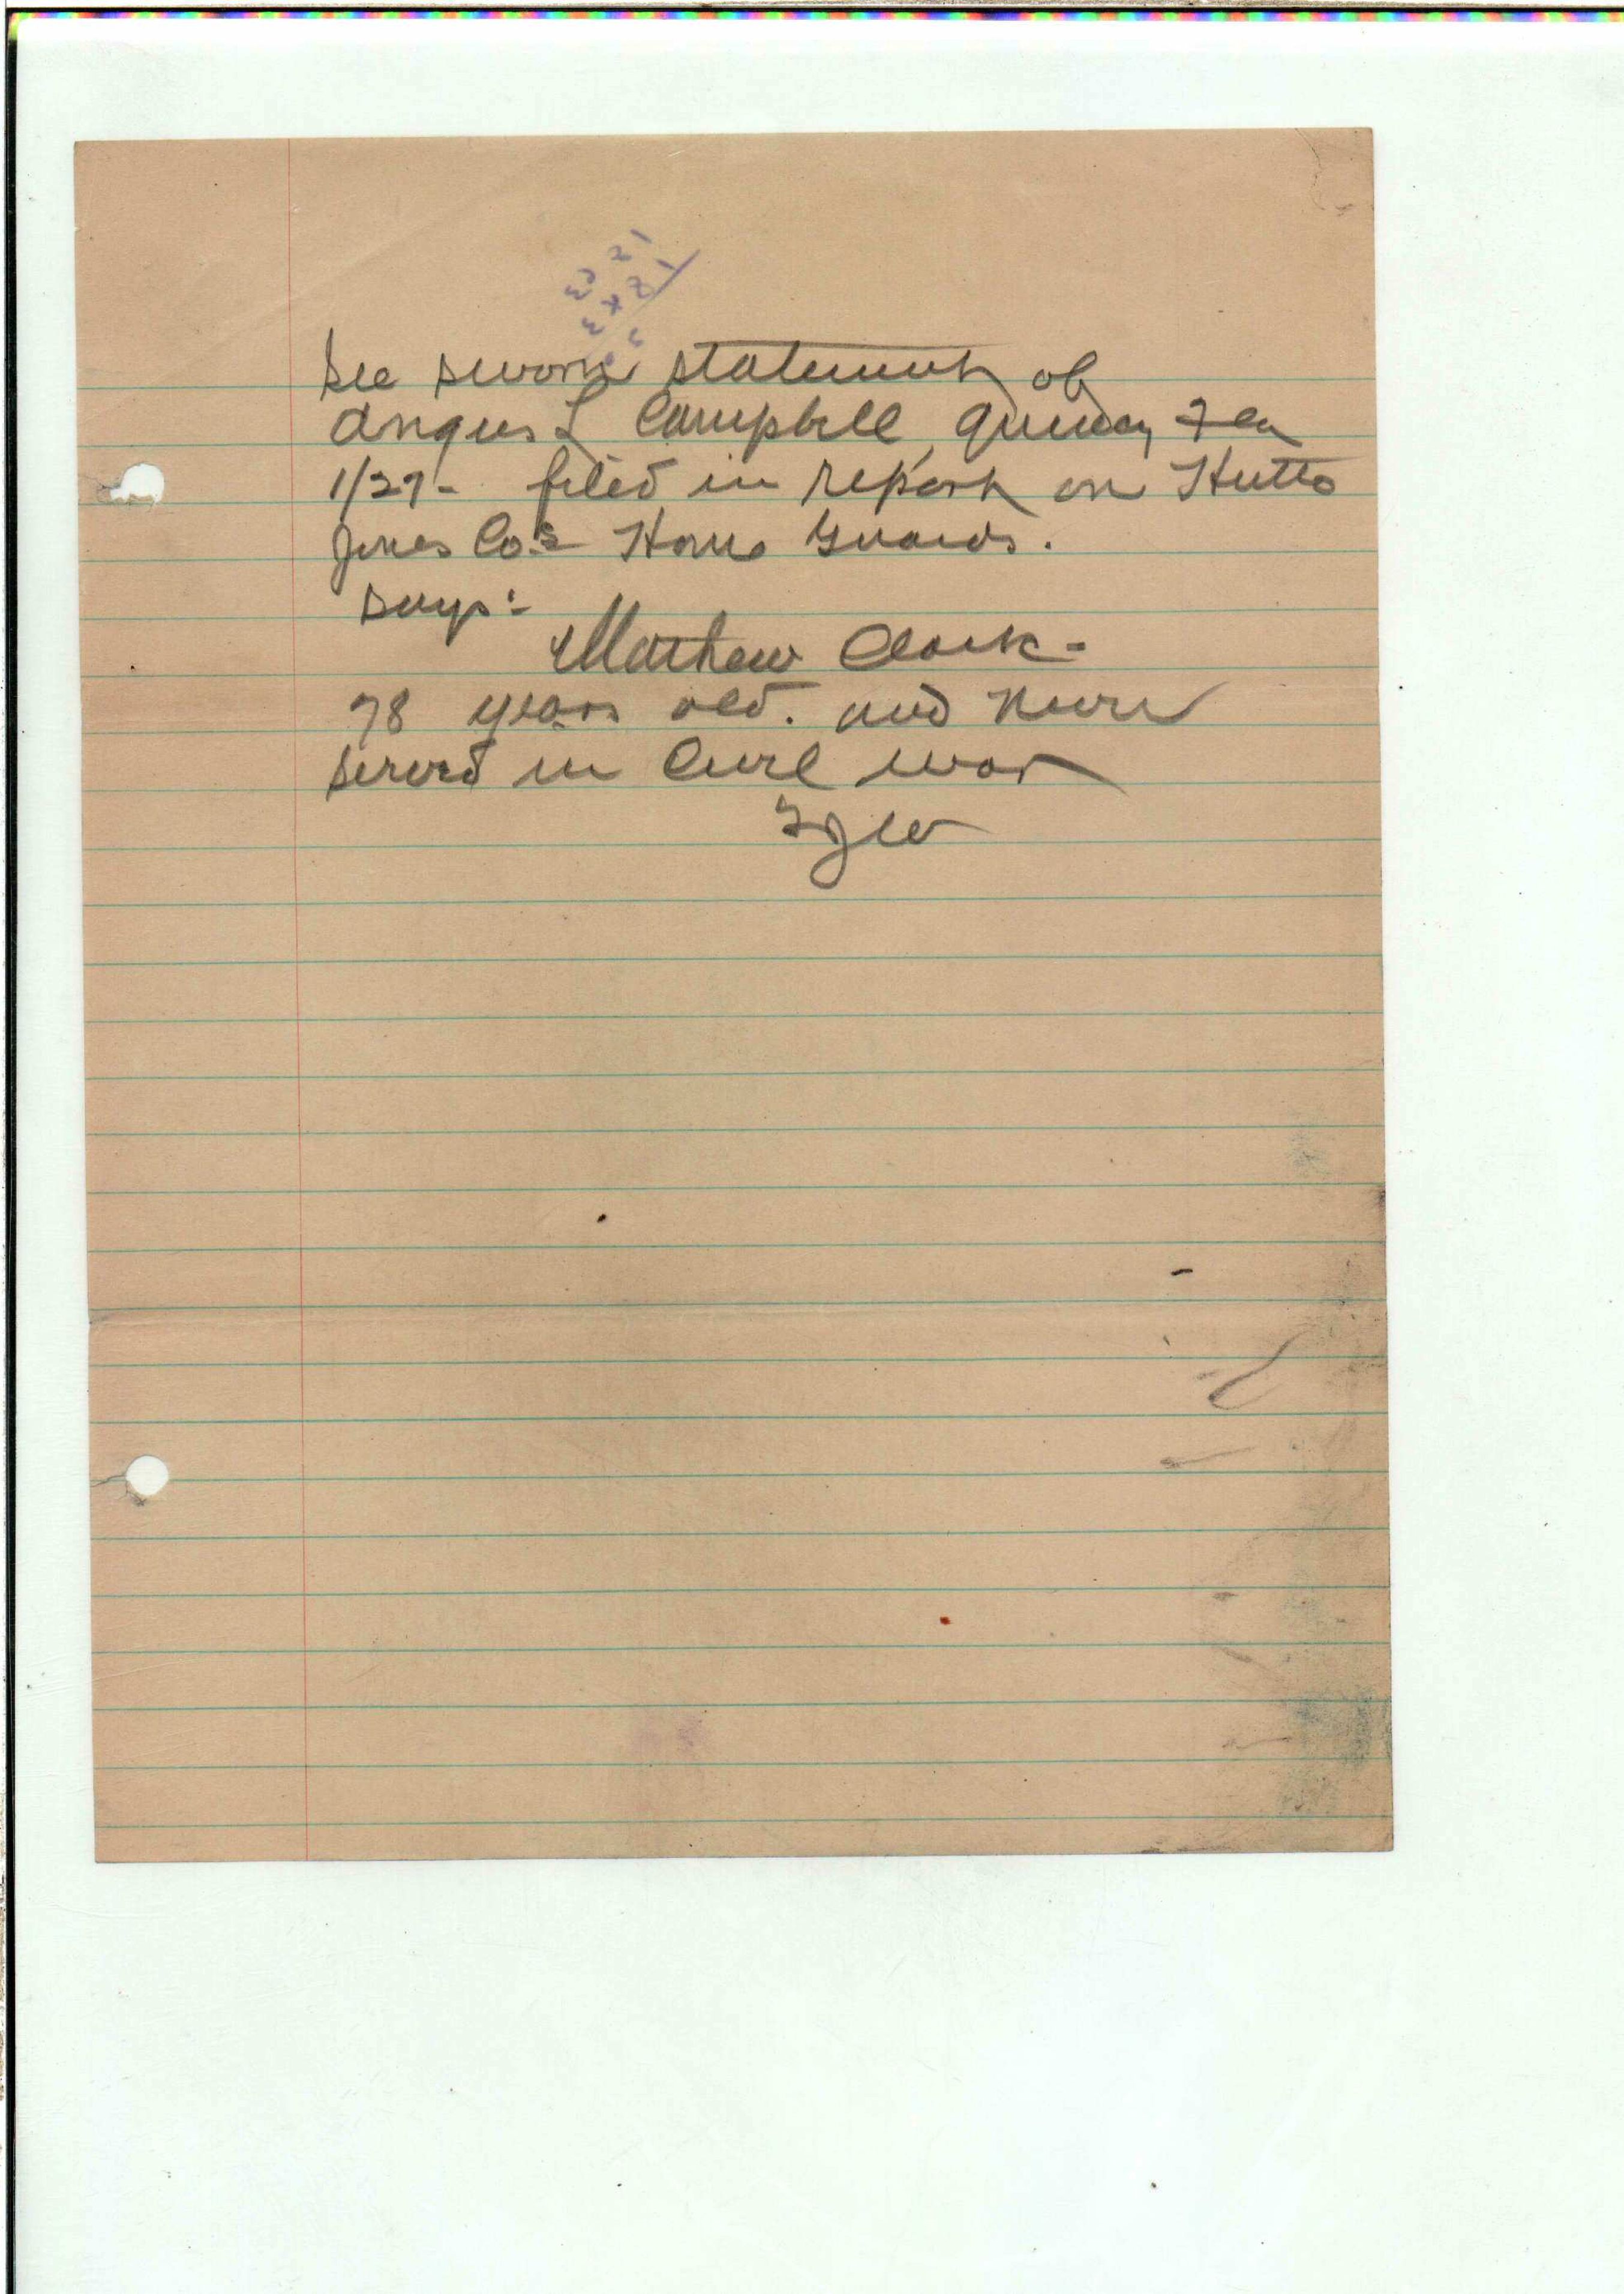 See sworn statement of
Angus L Campbell, Quincy Fla
1/27- filed in report on Hutto
Jones Co.s Home Guards.
Says:-
Mathew Clark-
78 years old. and never
served in Civil war
FJW